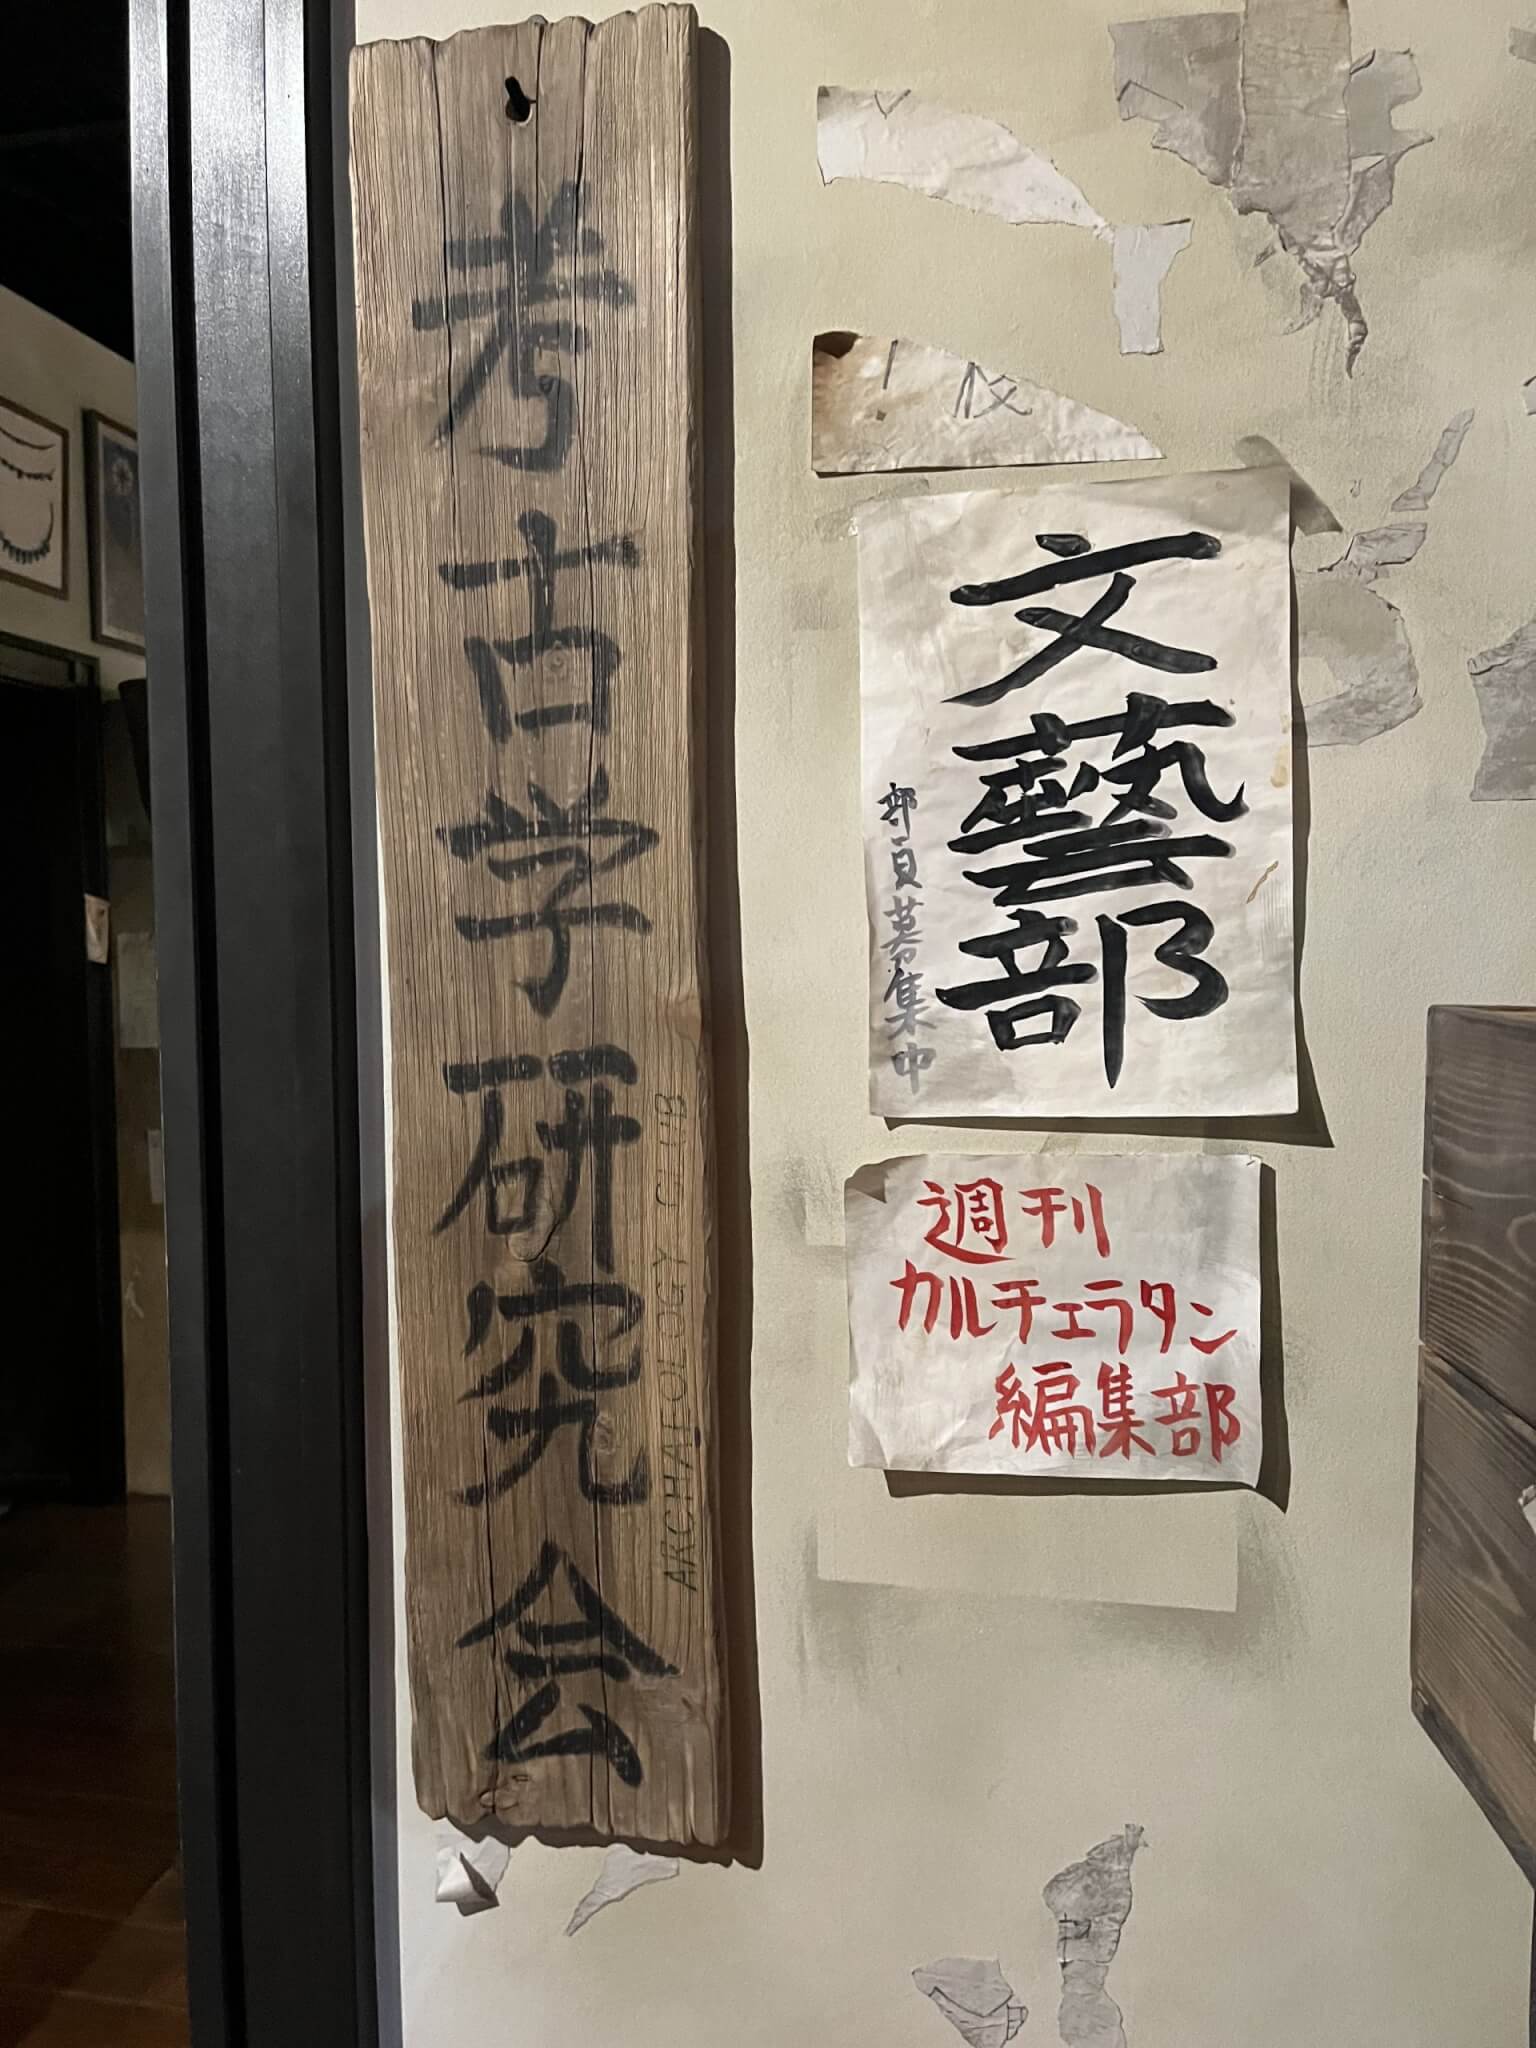 考古学研究会
ARCHAEOLOGY CLUB
文藝部
部員募集中
週刊
カルチェラタン
編集部